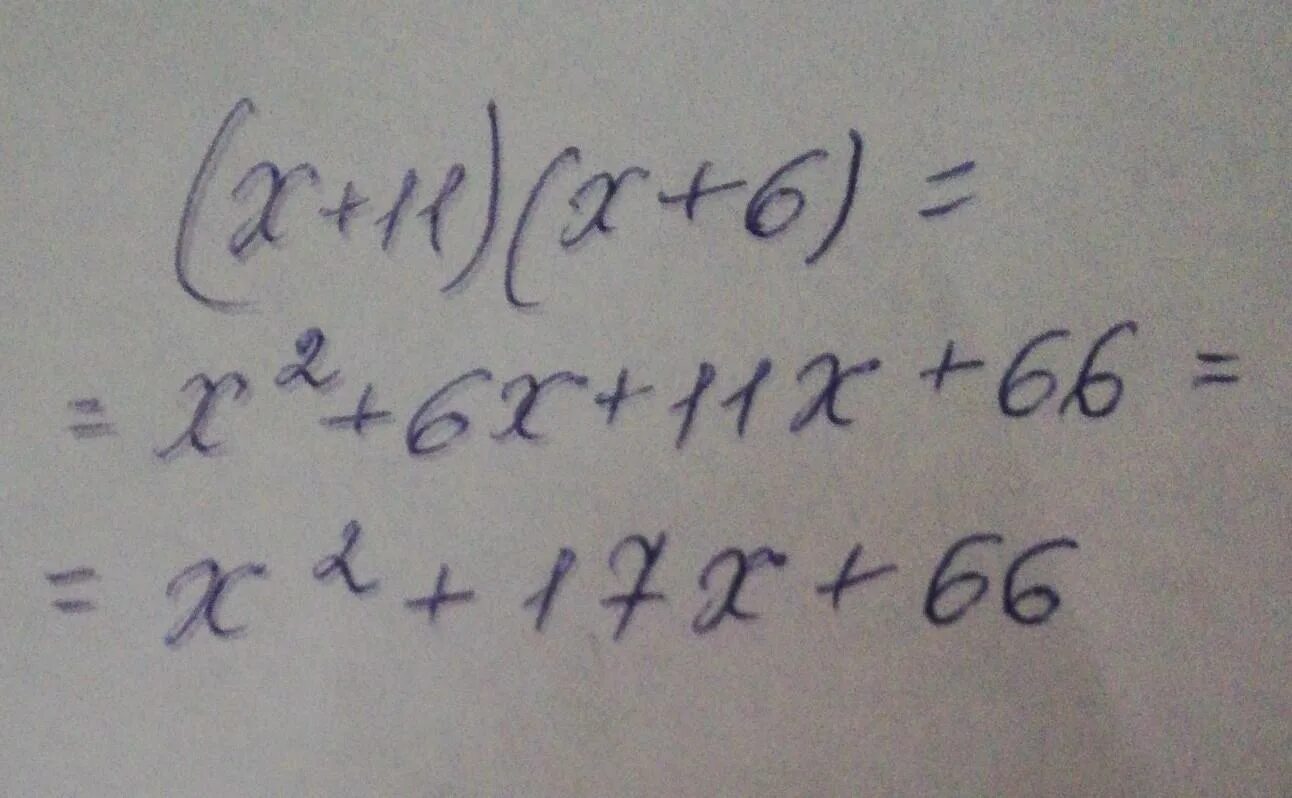 (x+11)(x+6)=
=x²+6x+11x+66=
=x²+17x+66